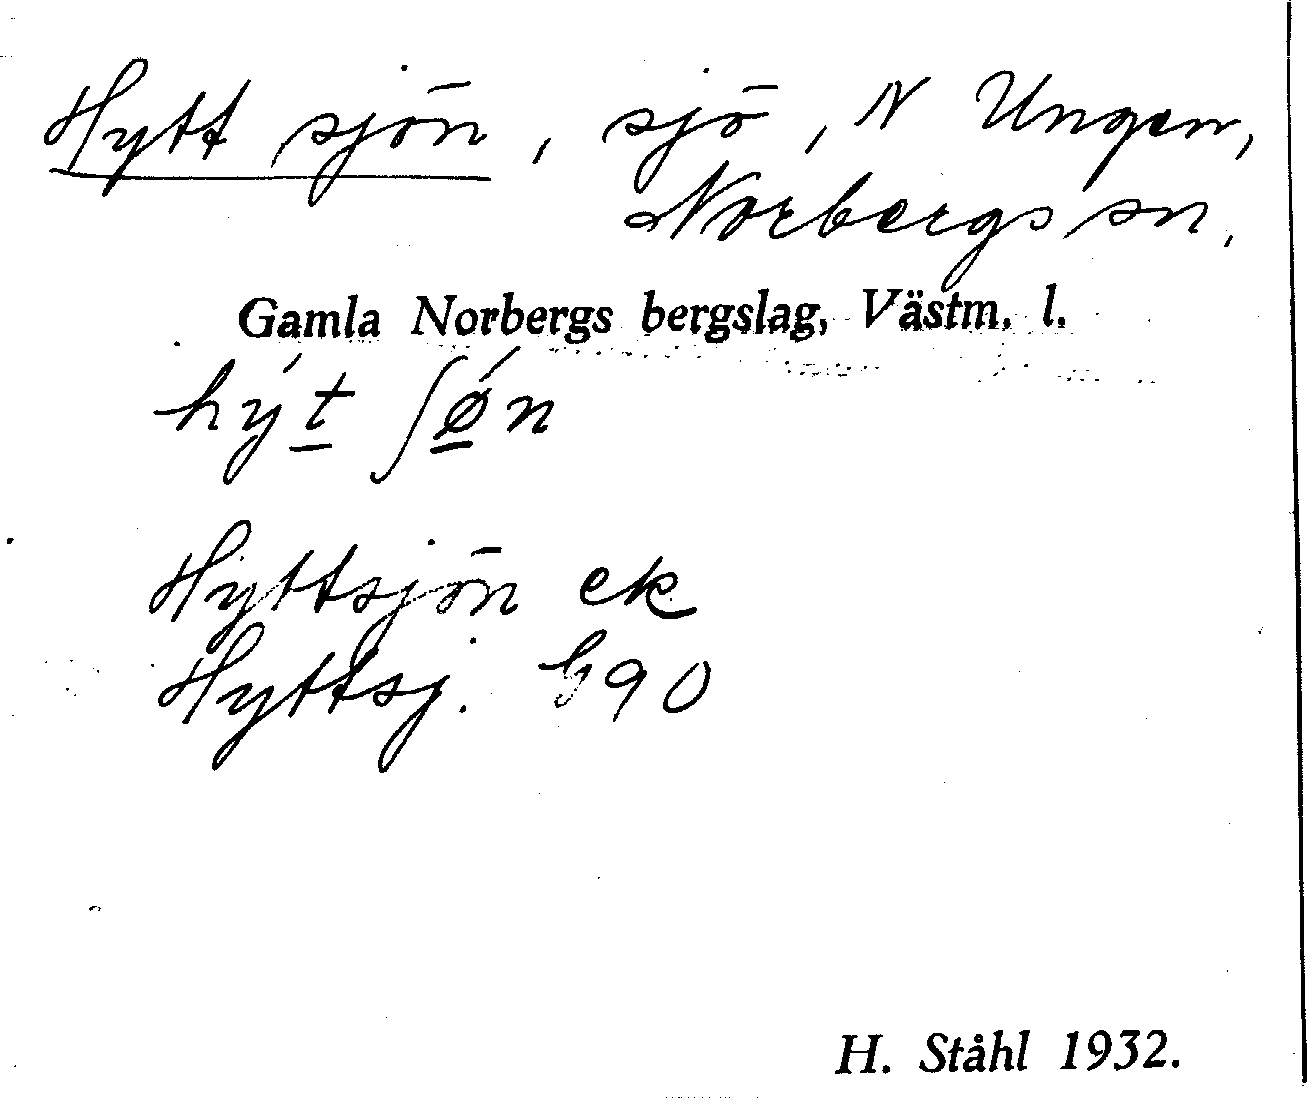 Hyttsjön, sjö, N Ungen,
Norbergs sn.
Gamla Norbergs bergslag, Västm. l.
hýt ʃǿn
Hyttsjön ek
Hyttsj. G90
H. Ståhl 1932.